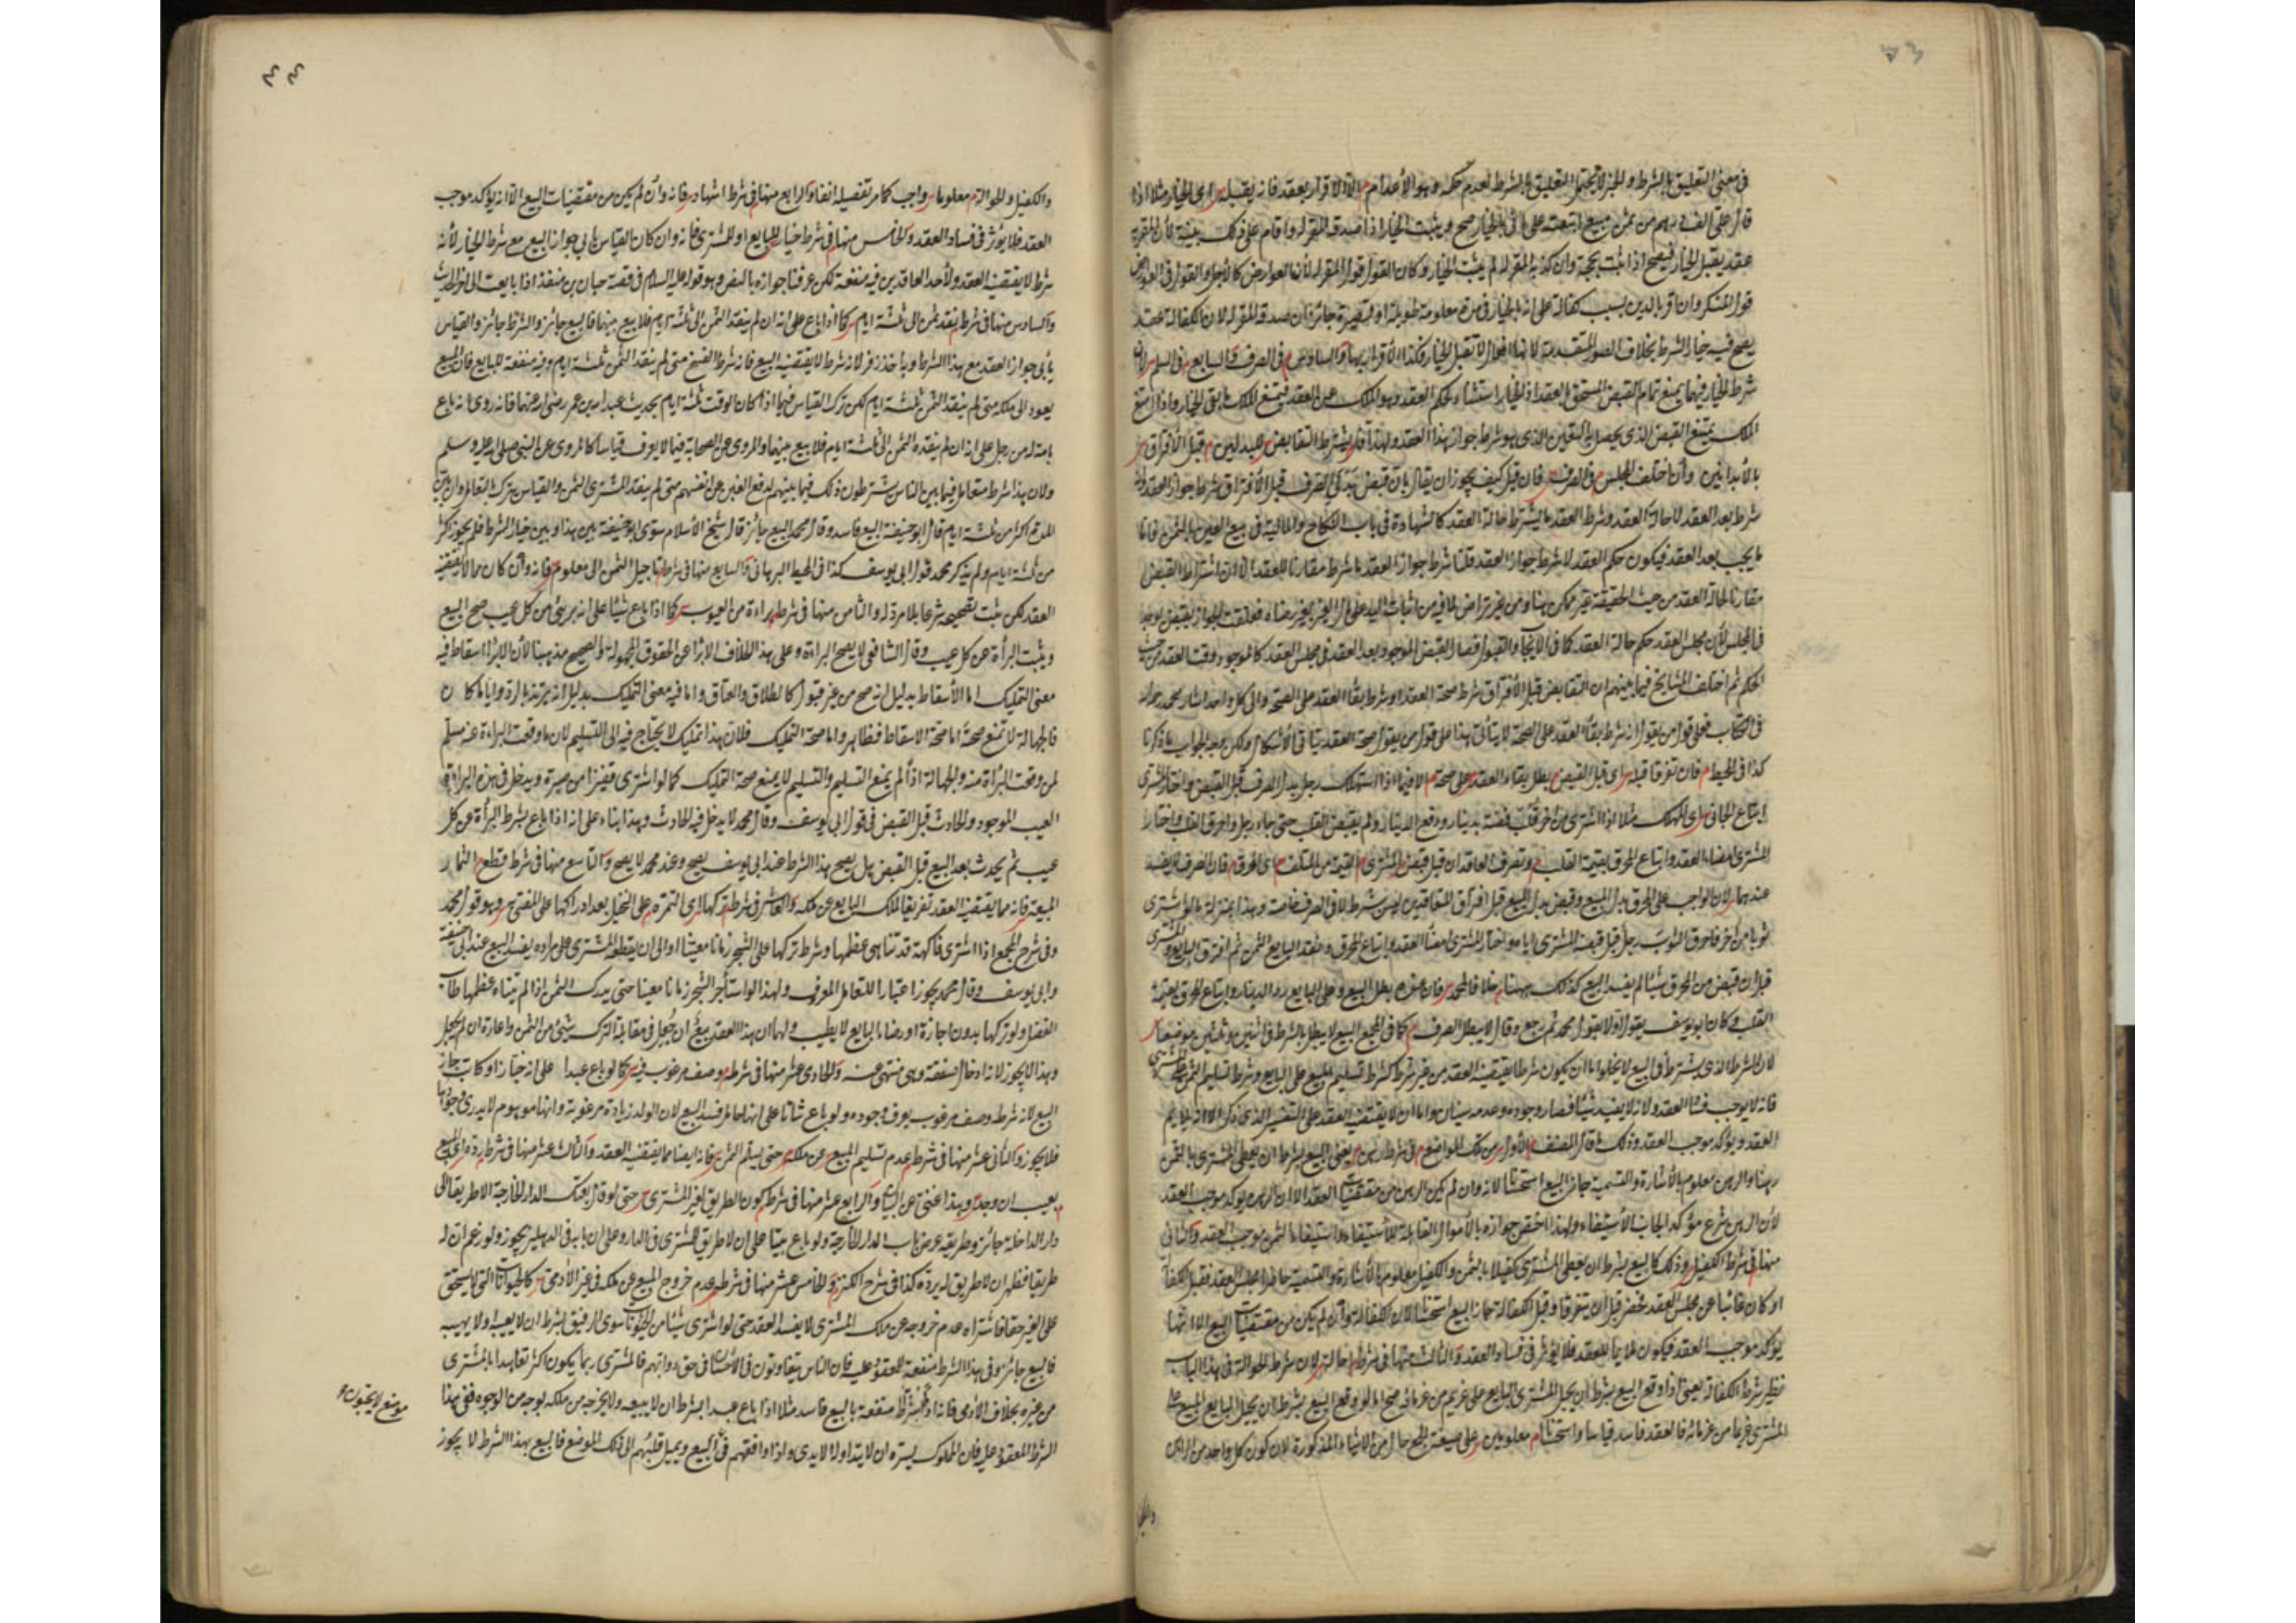 في معنى التعليق بالشرط والخبر لا يحتمل التعليق بالشرط لعدم حكمه وهو الأعدام م الا الاقرار بعقد فانه يقبله اى الخيار مثلا اذا
قال على الف درهم من ثمن مبيع ابتعته على انى بالخيار صح ويثبت الخيار اذا صدقه المقر له واقام على ذلك بينة لأن المقر به
عقد يقبل الخيار فيصح اذا ثبت بحجة وان كذبه المقر له لم يثبت الخيار وكان القول قول المقر له لأن العوارض كالأجل والقول في العوارض
قول المنكر وان اقر بالدين بسبب كفالة على انه بالخيار في مدة معلومة طويلة او قصيرة جائز ان صدقه المقر له لان الكفالة عقد
يصح فيه خيار الشرط بخلاف الصور المتقدمة لانها افعال لا تقبل الخيار فكذا الاقرار بها والسادس في الصرف والسابع في السلم لان
شرط الخيار فيهما يمنع تمام القبض المستحق بالعقد اذ الخيار استثناء لحكم العقد وهو الملك عن العقد فيمتنع الملك ما بقى الخيار واذا امتنع
الملك يمتنع القبض الذى يحصل به التعين الذى هو شرط جواز هذا العقد ولهذا قلنا يشترط التقابض للبدلين م قبل الأفتراق
بالأبدان وأن اختلف المجلس في الصرف فان قيل كيف يجوز ان يقال بأن قبض بدلى الصرف قبل الأفتراق شرط جواز العقد
شرط بعد العقد لا حالة العقد وشرط العقد ما يشترط حالة العقد كالشهادة في باب النكاح والمالية في بيع العين بالثمن فاما
ما يجب بعد العقد فيكون حكم العقد لا شرط جواز العقد قلنا شرط جواز العقد ما شرط مقارنا للعقد الا ان اشتراط القبض
مقارنا لحالة العقد من حيث الحقيقة غير ممكن هنا ومن غير تراض لما فيه من اثبات اليد على مال الغير بغير رضاه فعلقت الجواز بقبض يوجد
في المجلس لأن مجلس العقد حكم حالة العقد كما في الأيجاب والقبول فصار القبض الموجود بعد العقد في مجلس العقد كالموجود وقت العقد من حيث
الحكم ثم اختلف المشايخ فيما بينهم ان التقابض قبل الأفتراق شرط صحة العقد او شرط بقاء العقد على الصحة والى كل واحد اشار محمد رحمه الله
في الكتاب فعلى قول من يقول انه شرط بقاء العقد على الصحة لا يتأتى هذا على قول من يقول صحة العقد يتأتى الأشكال ولكن وجه الجواب ما ذكرنا
كذا في المحيط م فان تفرقا قبله اى قبل القبض بطل بقاء العقد على صحته م الا فيما اذا استهلك رجل بدل الصرف قبل القبض واختار المشترى
اتباع الجانى اى المهلك مثلا اذا اشترى من اخر قلب فضة بدينار ودفع الدينار ولم يقبض القلب حتى جاء رجل واحرق القلب فاختار
المشترى امضاء العقد واتباع المحرق بقيمة القلب م وتفرق العاقدان قبل قبض المشترى م القيمة من المتلف م اى المحرق م فان الصرف لا يفسد
عندهما لان الواجب على المحرق بدل المبيع وقبض بدل المبيع قبل افتراق المتعاقدين ليس شرط لا في الصرف خاصة وهذا بمنزلة ما لو اشترى
ثوبا من اخر فاحرق الثوب رجل قبل قبضه المشترى اياه واختار المشترى امضاء العقد واتباع المحرق ونقد البايع الثمن ثم افترق البايع والمشترى
قبل ان قبض من المحرق شيئا لم يفسد البيع كذلك ههنا م خلافا لمحمد فان عنده بطل البيع وعلى البايع رد الدينار واتباع المحرق بقيمة
القلب وكان ابو يوسف يقول اولا بقول محمد ثم رجع وقال لا يبطل الصرف م كما في المجمع البيع لا يبطل بالشرط في اثنين وثلثين موضعا
لان الشرط الذى يشترط في البيع لا يخلو اما ان يكون شرطا يقتضيه العقد من غير شرط كشرط تسليم المبيع على البايع وشرط تسليم الثمن على المشترى
فانه لا يوجب فساد العقد ولانه لا يفيد شيئا فصار وجوده وعدمه سيان واما ان لا يقتضيه العقد على التفسير الذى ذكر الا انه يلايم
العقد ويؤكد موجب العقد وذلك ما قال المصنف الأول من تلك المواضع م في شرط رهن يعنى البيع بشرط ان يعطى المشترى بالثمن
رهنا والرهن معلوم بالأشارة والتسمية جاز البيع استحسانا لانه وان لم يكن الرهن من مقتضيات العقد الا ان الرهن يؤكد موجب العقد
لأن الرهن شرع مؤكد الجانب الأستيفاء ولهذا اختص جوازه بالأموال القابلة للأستيفاء واستيفاء الثمن موجب العقد والثانى
منها في شرط الكفيل وذلك كالبيع بشرط ان يعطى المشترى كفيلا بالثمن والكفيل معلوم بالأشارة والتسمية حاضر مجلس العقد فقبل الكفالة
او كان غائبا عن مجلس العقد فحضر قبل ان يتفرقا وقبل الكفالة جاز البيع استحسانا لان الكفالة وأن لم يكن من مقتضيات البيع الا انها
يؤكد موجب العقد فيكون ملايما للعقد فلا يؤثر في فساد العقد والثالث منها في شرط احالة لان شرط الحوالة في هذا الباب
نظير شرط الكفالة يعنى اذا وقع البيع بشرط ان يحيل المشترى البايع على غريم من غرمائه صح اما لو وقع البيع بشرط ان يحيل البايع المبيع على
المشترى غريما من غرمائه فالعقد فاسد قياسا واستحسانا م معلومين على صيغة الجمع حال من الاشياء المذكورة لان كون كل واحد من الرهن
والكفيل
والكفيل والحوالة م معلوما واجب كما مر تفصيله انفا والرابع منها في شرط اشهاد فانه وأن لم يكن من مقتضيات البيع الا انه يؤكد موجب
العقد فلا يؤثر في فساد العقد والخامس منها في شرط خيار للبايع او للمشترى فانه وان كان القياس يأبى جواز البيع مع شرط الخيار لأنه
شرط لا يقتضيه العقد ولأحد العاقدين فيه منفعة لكن عرفنا جوازه بالنص وهو قوله عليه السلام في قصة حبان بن منقذ اذا بايعت الى اخر الحديث
والسادس منها في شرط نقد ثمن الى ثلثة ايام كما اذا باع على انه ان لم ينقد الثمن الى ثلثة ايام فلا بيع بينهما فالبيع جائز والشرط جائز والقياس
يأبى جواز العقد مع هذا الشرط وبه اخذ زفر لانه شرط لا يقتضيه البيع فانه شرط الفسخ متى لم ينقد الثمن ثلثة ايام وفيه منفعة للبايع فان المبيع
يعود الى ملكه متى لم ينقد الثمن ثلثة ايام لكن ترك القياس فيما اذا كان الوقت ثلثة ايام بحديث عبد الله بن عمر رضى الله عنهما فانه روى انه باع
بامة له من رجل على انه ان لم ينقده الثمن الى ثلثة ايام فلا بيع بينهما والمروى عن الصحابة فيما لا يعرف قياسا كالمروى عن النبى صلى الله عليه وسلم
ولان هذا شرط متعامل فيما بين الناس يشترطون ذلك فيما بينهم لدفع الغبن عن انفسهم متى لم ينقد المشترى الثمن والقياس يترك بالتعامل وان بين
المدة اكثر من ثلثة ايام قال ابو حنيفة البيع فاسد وقال محمد البيع جائز قال شيخ الأسلام سوى ابو حنيفة بين هذا وبين خيار الشرط فلم يجوز اكثر
من ثلثة ايام ولم يذكر محمد قول ابى يوسف كذا في المحيط البرهانى والسابع منها في شرط تأجيل الثمن الى معلوم فانه وأن كان مما لا يقتضيه
العقد لكن ثبت تصحيحه شرعا بلا مرد له والثامن منها في شرط براءة من العيوب كما اذا باع شيئا على انه برئ من كل عيب صح البيع
ويثبت البرأة عن كل عيب وقال الشافعى لا يصح البراءة وعلى هذا الخلاف الابراء عن الحقوق المجهولة والصحيح مذهبنا لأن الابراء اسقاط فيه
معنى التمليك اما الأسقاط بدليل انه صح من غير قبول كالطلاق والعتاق واما فيه معنى التمليك بدليل انه يرتد بالرد وايا ما كان
فالجهالة لا تمنع صحته اما صحة الاسقاط فظاهر واما صحة التمليك فلان هذا تمليك لا يحتاج فيه الى التسليم لان ما وقعت البراءة عنه مسلم
لمن وقعت البرأة منه والجهالة اذا لم يمنع التسليم والتسليم لا يمنع صحة التمليك كما لو اشترى قفيزا من صبرة ويدخل في هذه البراءة
العيب الموجود والحادث قبل القبض في قول ابى يوسف وقال محمد لا يدخل فيه الحادث وهذا بناء على انه اذا باع بشرط البرأة عن كل
عيب ثم يحدث بعد البيع قبل القبض هل يصح هذا الشرط عند ابى يوسف يصح وعند محمد لا يصح والتاسع منها في شرط قطع الثمار
المبيعة فانه مما يقتضيه العقد تفريغا لملك البايع عن ملكه والعاشر في شرط تركها اى الثمرة على النخيل بعد ادراكها على المفتى به وهو قول محمد
وفي شرح المجمع اذا اشترى فاكهة قد تناهى عظمها وشرط تركها على الشجر زمانا معينا او الى ان يقطعه المشترى على مراده يفسد البيع عند ابى حنيفة
وابى يوسف وقال محمد يجوز اعتبارا للتعامل المعروف ولهذا لو استأجر الشجر زمانا معينا حتى يدرك الثمن اذا لم يتناه عظمها طاب
الفضل ولو تركها بدون اجازة او رضاء البايع لا يطيب ولهما ان هذا العقد بيع ان جعل في مقابلة الترك شيئ من الثمن واعارة ان لم يجعل
وهذا لا يجوز لانه ادخال صفقة وهى منهى عنه والحادى عشر منها في شرط وصف مرغوب فيه كما لو باع عبدا على انه خباز او كاتب جاز
البيع لانه شرط وصف مرغوب يعرف وجوده ولو باع شاتا على انها حامل فسد البيع لان الولد زيادة مرغوبة وانها موهوم لا يدرى وجودها
فلا يجوز والثانى عشر منها في شرط عدم تسليم المبيع عن ملكه حتى يسلم الثمن فانه ايضا مما يقتضيه العقد والثالث عشر منها في شرط رده اى المبيع
بعيب ان وجد وهذا غنى عن البيان والرابع عشر منها في شرط كون الطريق لغير المشترى حتى لو قال بعتك الدار الخارجة الا طريقا الى
دار الداخلة جائز وطريقه عرض باب الدار الخارجة ولو باع بيتا على ان لا طريق للمشترى في الدار وعلى ان بابه في الدهليز يجوز ولو زعم ان له
طريقا فظهر ان لا طريق له يرده كذا في شرح الكنز والخامس عشر منها في شرط عدم خروج المبيع عن ملكه في غير الأدمى كالحيوانات التى لا يستحق
على الغير حقا فاشتراه عدم خروجه عن ملك المشترى لا يفسد العقد حتى لو اشترى شيئا من الحيوانات سوى الرقيق بشرط ان لا يبيعه ولا يهبه
فالبيع جائز وفي هذا الشرط منفعة للمعقود عليه فان الناس يتفاوتون في الأحسان في حق دوابهم فالمشترى ربما يكون اكثر تعاهدا بالمشترى
من غيره بخلاف الأدمى فانه اذا اشترط منفعة بالبيع فاسد مثلا اذا باع عبدا بشرط ان لا يبيعه ولا يخرجه من ملكه بوجه من الوجوه ففى هذا
الشرط للمعقود عليه فان المملوك يسره ان لا يتداوله الايدى واذا وافقهم في البيع ويميل قلبهم الى ذلك الموضع فالبيع بهذا الشرط لا يجوز